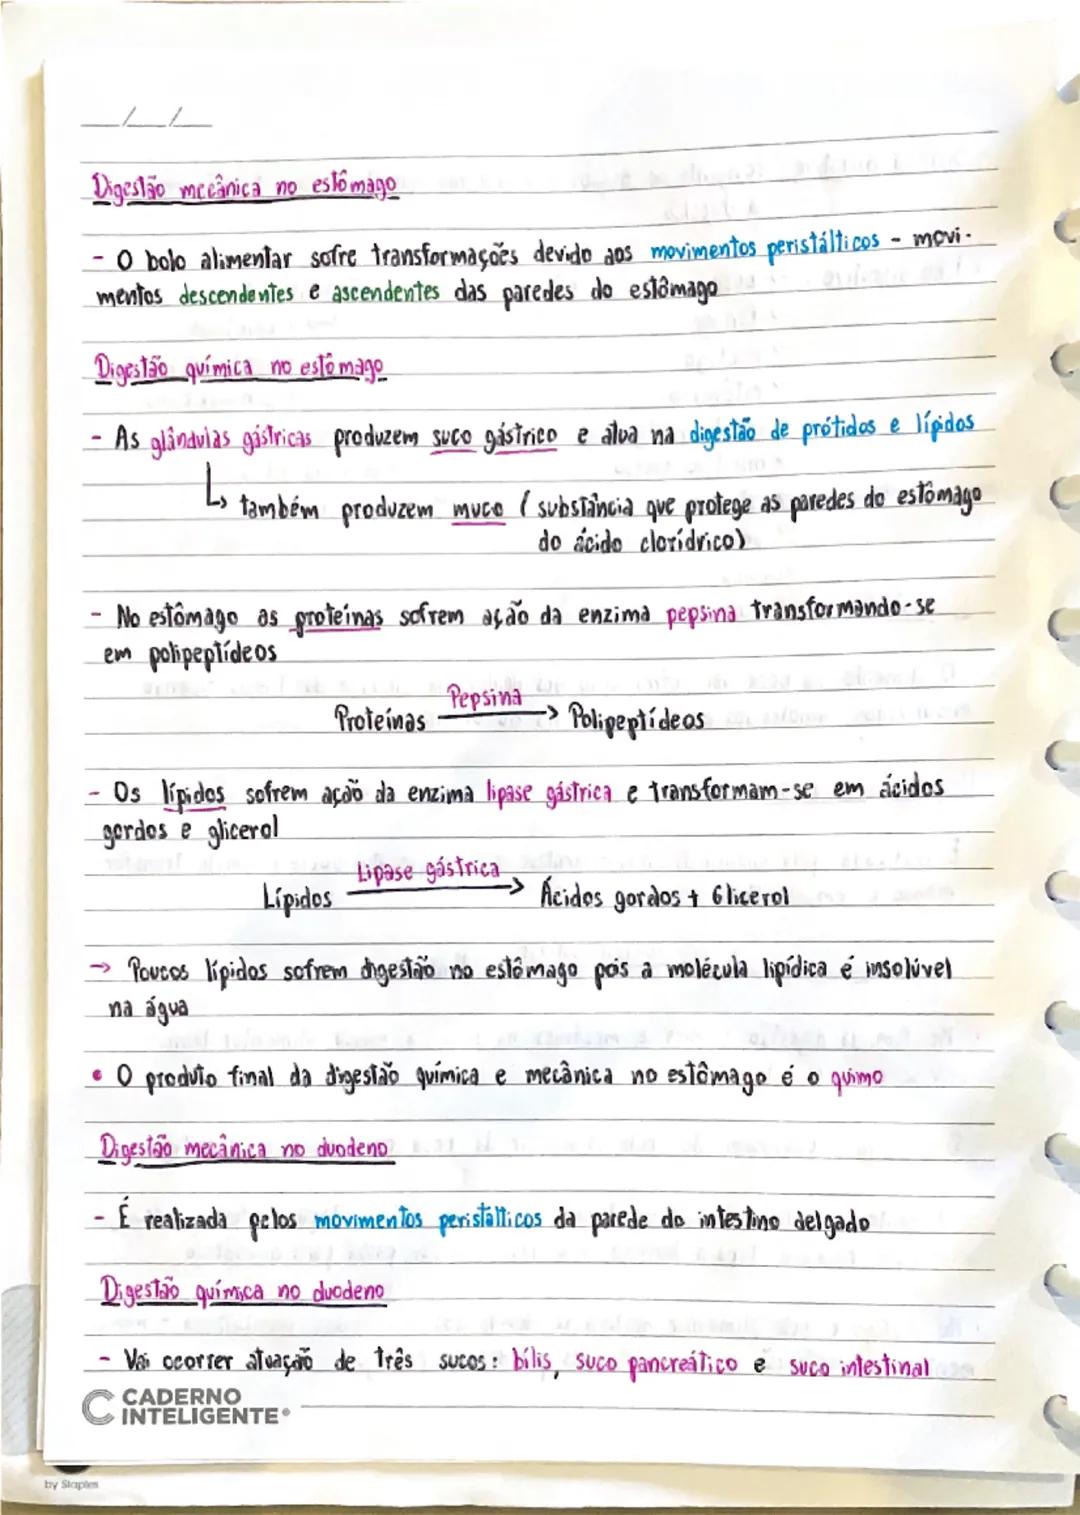 __/__/__
Digestão mecânica no estômago
- O bolo alimentar sofre transformações devido aos movimentos peristálticos - movi-
mentos descendentes e ascendentes das paredes do estômago
Digestão química no estômago
- As glândulas gástricas produzem suco gástrico e atua na digestão de prótidos e lípidos
↳ também produzem muco (substância que protege as paredes do estômago
do ácido clorídrico)
- No estômago as proteínas sofrem ação da enzima pepsina transformando-se
em polipeptídeos
Pepsina
Proteínas → Polipeptídeos
- Os lípidos sofrem ação da enzima lipase gástrica e transformam-se em ácidos
gordos e glicerol
Lipase gástrica
Lípidos → Ácidos gordos + Glicerol
→ Poucos lípidos sofrem digestão no estômago pois a molécula lipídica é insolúvel
na água
• O produto final da digestão química e mecânica no estômago é o quimo
Digestão mecânica no duodeno
- É realizada pelos movimentos peristálticos da parede do intestino delgado
Digestão química no duodeno
- Vai ocorrer atuação de três sucos: bílis, suco pancreático e suco intestinal
CADERNO
INTELIGENTE®
by Staples